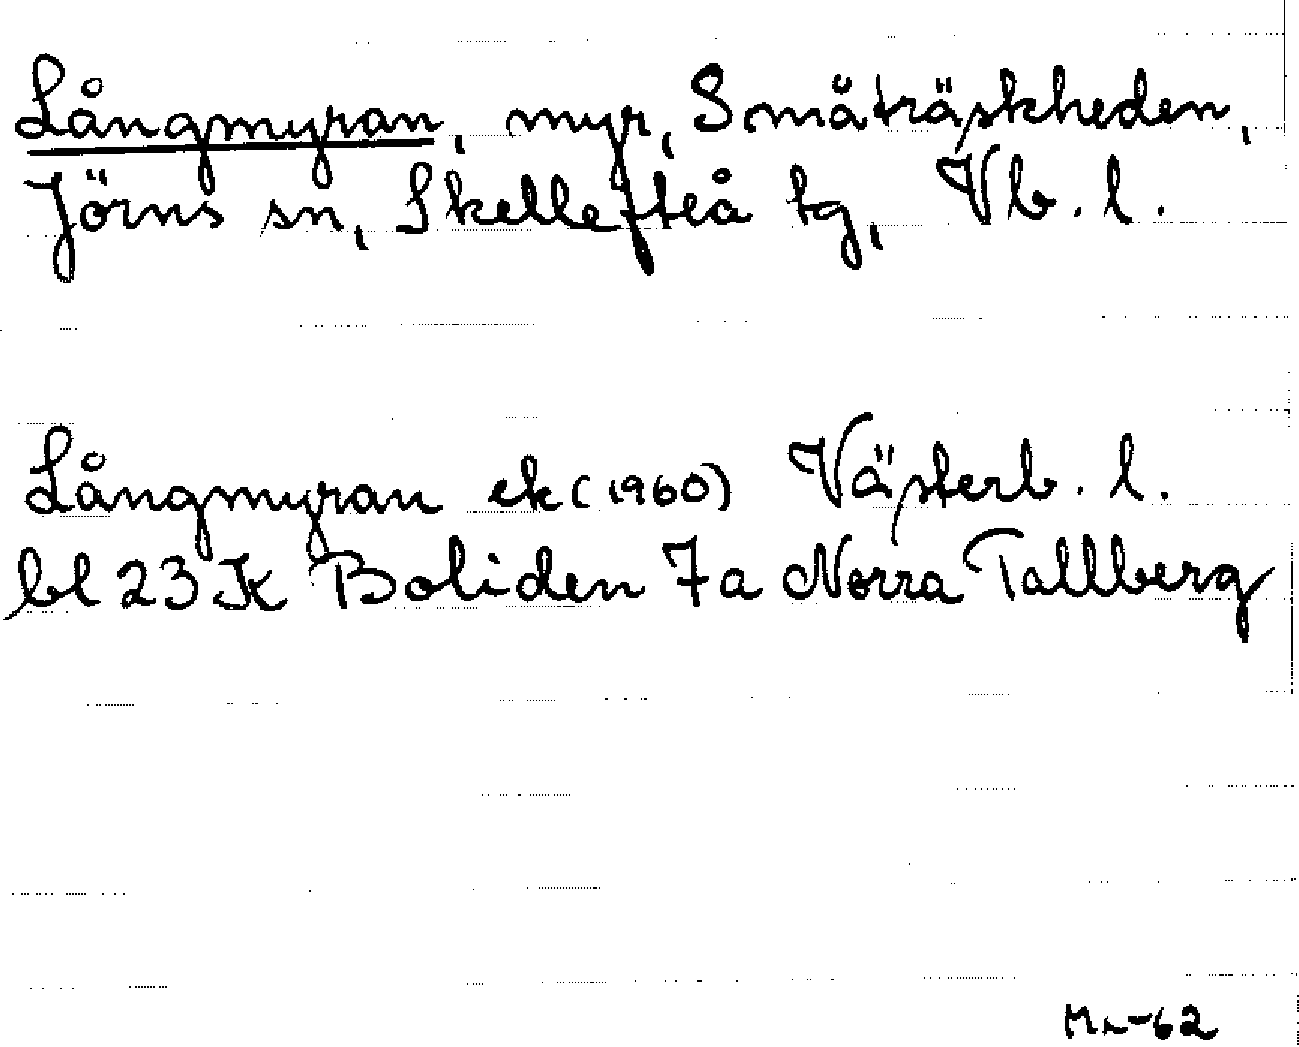 Långmyran, myr, Småträskheden,
Jörns sn, Skellefteå tg, Vb. l.
Långmyran ek (1960) Västerb. l.
bl 23 K Boliden 7a Norra Tallberg
-62